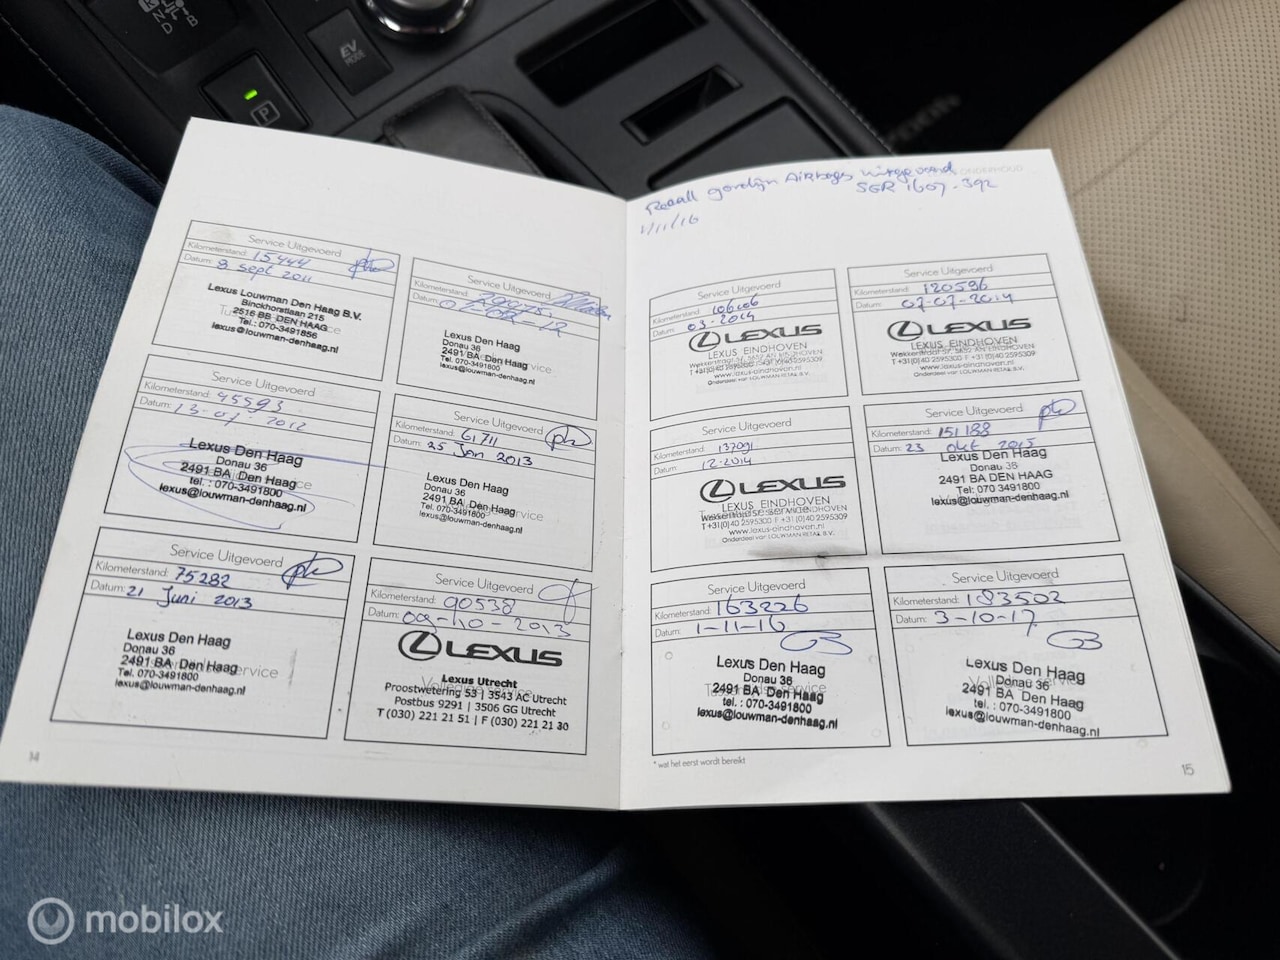 N
B
D
EV
MODE
P
Recall gordijn Airbags uitgevoerd
SGR 1607-392
1/11/16
Service Uitgevoerd
Kilometerstand: 15444
Datum: 8 sept 2011
Lexus Louwman Den Haag B.V.
Binckhorstlaan 215
2516 BB DEN HAAG
Tel.: 070-3491856
lexus@louwman-denhaag.nl
Service Uitgevoerd
Kilometerstand:
Datum:
Lexus Den Haag
Donau 36
2491 BA Den Haag
Tel. 070-3491800
lexus@louwman-denhaag.nl
Service Uitgevoerd
Kilometerstand: 45593
Datum: 13-07 2012
Lexus Den Haag
Donau 36
2491 BA Den Haag
tel.: 070-3491800
lexus@louwman-denhaag.nl
Service Uitgevoerd
Kilometerstand: 61711
Datum: 25 Jan 2013
Lexus Den Haag
Donau 36
2491 BA Den Haag
Tel. 070-3491800
lexus@louwman-denhaag.nl
Service Uitgevoerd
Kilometerstand: 75282
Datum: 21 Juni 2013
Lexus Den Haag
Donau 36
2491 BA Den Haag
Tel. 070-3491800
lexus@louwman-denhaag.nl
Service Uitgevoerd
Kilometerstand: 90538
Datum: 09-10-2013
LEXUS
Lexus Utrecht
Proostwetering 53 | 3543 AC Utrecht
Postbus 9291 | 3506 GG Utrecht
T (030) 221 21 51 | F (030) 221 21 30
14
Service Uitgevoerd
Kilometerstand: 106606
Datum: 03-2014
LEXUS
LEXUS EINDHOVEN
T +31(0)40 2595300 F +31(0)40 2595309
www.lexus-eindhoven.nl
Onderdeel van LOUWMAN RETAIL B.V.
Service Uitgevoerd
Kilometerstand: 120596
Datum: 07-07-2014
LEXUS
LEXUS EINDHOVEN
T +31(0)40 2595300 F +31(0)40 2595309
www.lexus-eindhoven.nl
Onderdeel van LOUWMAN RETAIL B.V.
Service Uitgevoerd
Kilometerstand: 137091
Datum: 12-2014
LEXUS
LEXUS EINDHOVEN
T +31(0)40 2595300 F +31(0)40 2595309
www.lexus-eindhoven.nl
Onderdeel van LOUWMAN RETAIL B.V.
Service Uitgevoerd
Kilometerstand: 151188
Datum: 23 okt 2015
Lexus Den Haag
Donau 36
2491 BA DEN HAAG
Tel: 070 3491800
lexus@louwman-denhaag.nl
Service Uitgevoerd
Kilometerstand: 163226
Datum: 1-11-16
Lexus Den Haag
Donau 36
2491 BA Den Haag
tel. : 070-3491800
lexus@louwman-denhaag.nl
Service Uitgevoerd
Kilometerstand: 183502
Datum: 3-10-17
Lexus Den Haag
Donau 36
2491 BA Den Haag
tel. : 070-3491800
lexus@louwman-denhaag.nl
* wat het eerst wordt bereikt
15
mobilox